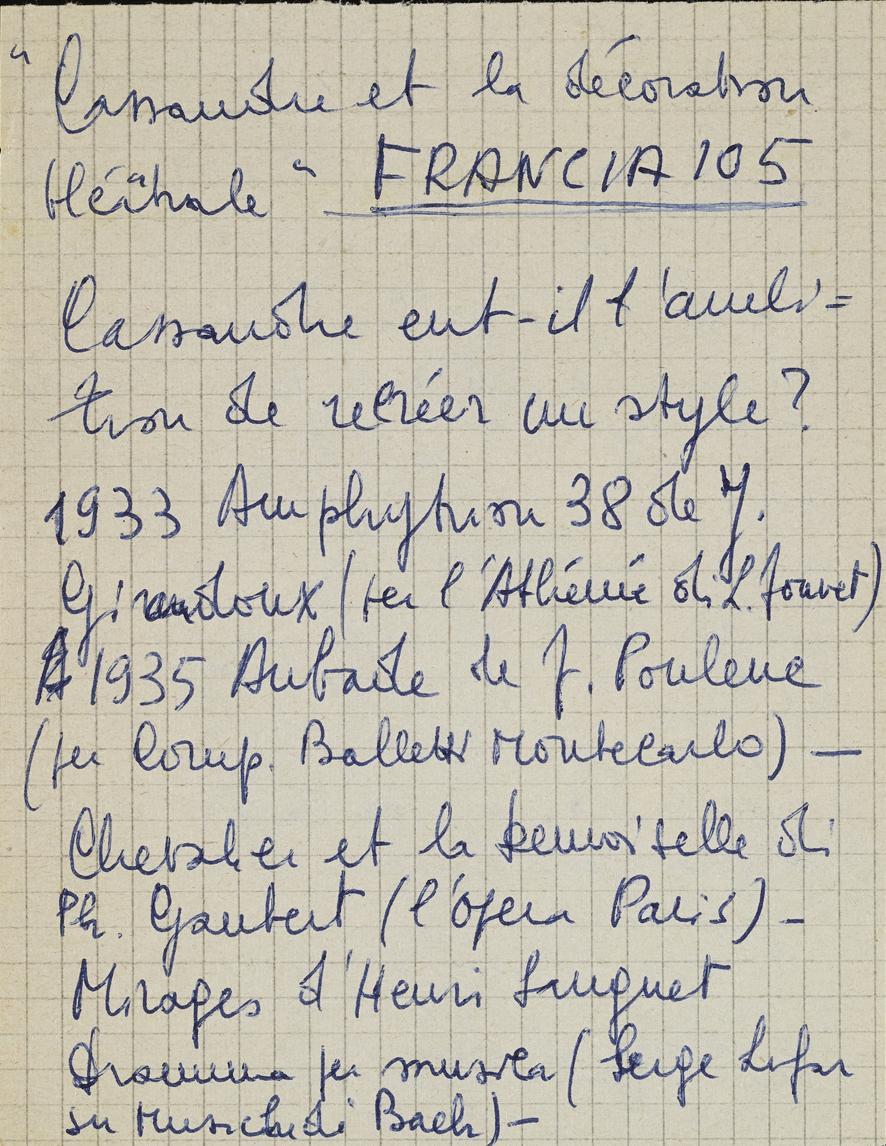 "Cassandre et la décoration
théâtrale" FRANCIA 105
Cassandre eut-il l'ambi=
tion de recréer un style?
1933 Amphytrion 38 de J.
Giraudoux (per l'Athénée di L. Jouvet)
1935 Aubade de F. Poulenc
(per Comp. Balletti Montecarlo) —
Chevalier et la Demoiselle di
Ph. Gaubert (l'Opera Paris) -
Mirages d'Henri Sauguet
Dramma per musica (Serge Lifar
su Musiche di Bach) -